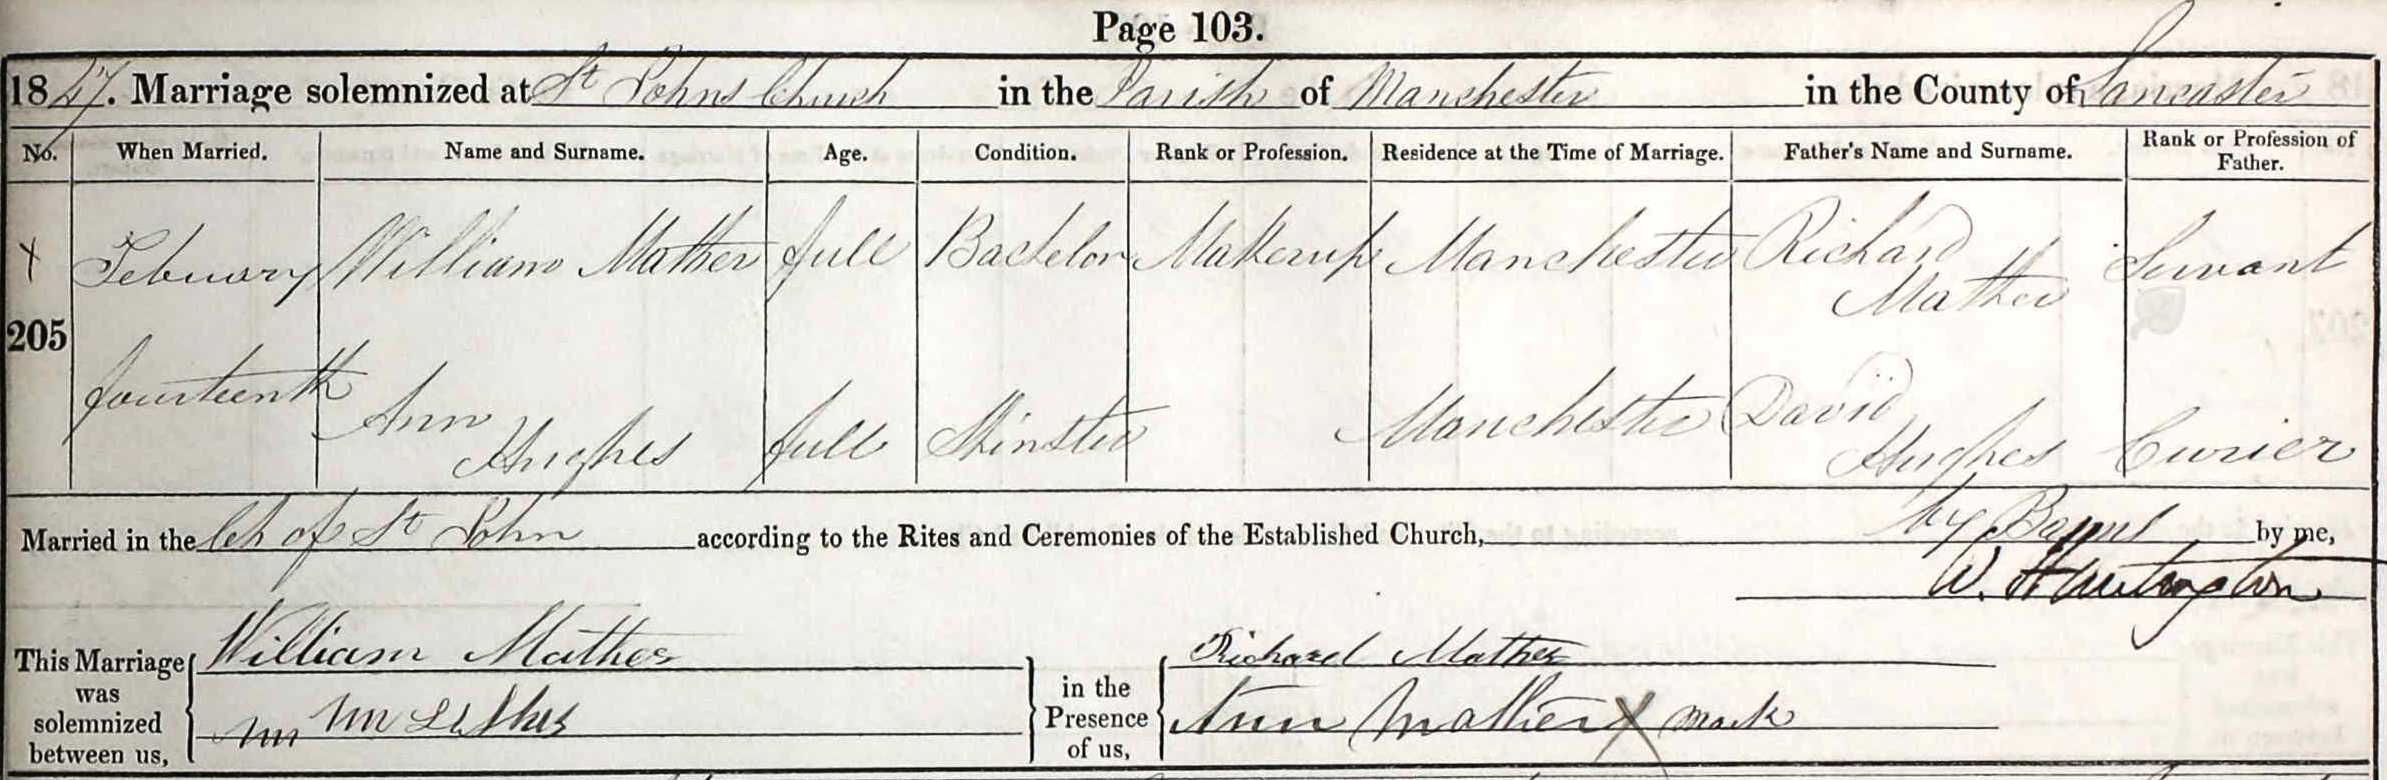 Page 103.
1847. Marriage solemnized at St Johns Church in the Parish of Manchester in the County of Lancaster
No. When Married. Name and Surname. Age. Condition. Rank or Profession. Residence at the Time of Marriage. Father's Name and Surname. Rank or Profession of Father.
X Febuary William Mather full Bachelor Makerup Manchester Richard Mather Servant
205
fourteenth Ann Hughes full Spinster Manchester David Hughes Currier
Married in the Ch of St John according to the Rites and Ceremonies of the Established Church, by Banns by me,
W. Huntington
This Marriage was solemnized between us,
William Mather
in the Presence of us,
Richard Mather
Ann Mather X mark